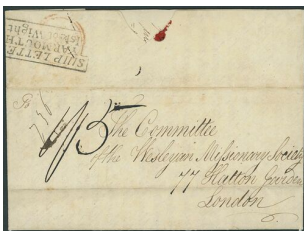 SHIP LETTER
YARMOUTH
Isle of Wight
The Committee
of the Wesleyan Missionary Society
77 Hatton Garden
London